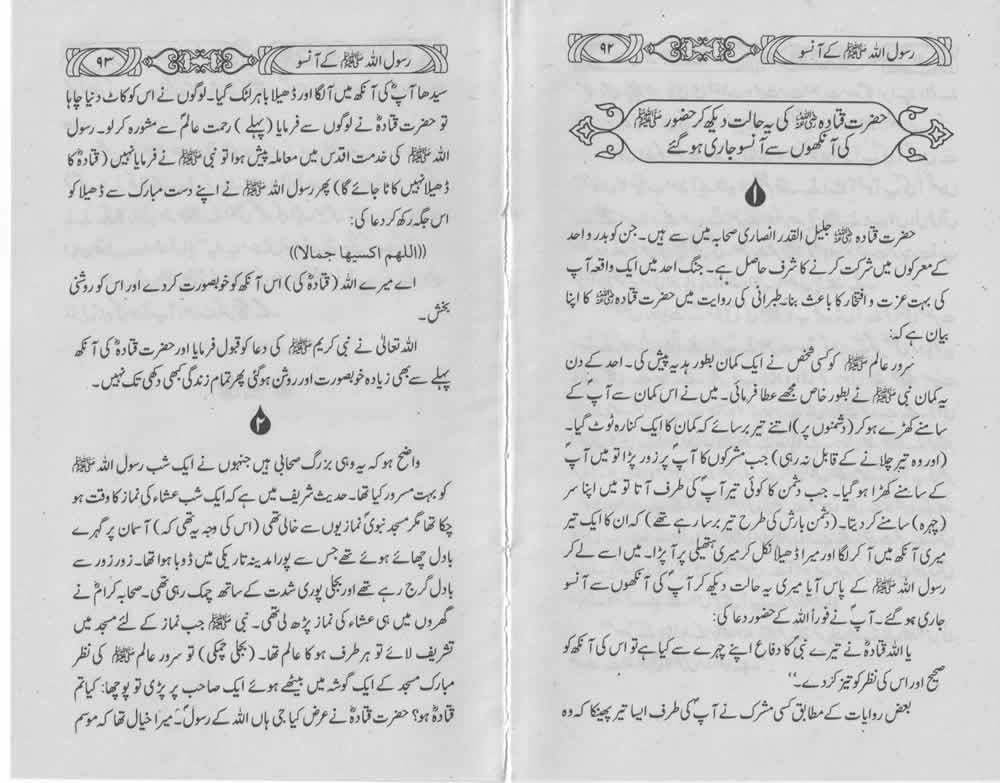 رسول اللہ ﷺ کے آنسو
۹۲
حضرت قتادہ رضی اللہ عنہ کی یہ حالت دیکھ کر حضور ﷺ
کی آنکھوں سے آنسو جاری ہو گئے
۱
حضرت قتادہ رضی اللہ عنہ جلیل القدر انصاری صحابہ میں سے ہیں۔ جن کو بدر و احد
کے معرکوں میں شرکت کرنے کا شرف حاصل ہے۔ جنگ احد میں ایک واقعہ آپ
کی بہت عزت و افتخار کا باعث بنا۔ طبرانی کی روایت میں حضرت قتادہ رضی اللہ عنہ کا اپنا
بیان ہے کہ:
سرور عالم ﷺ کو کسی شخص نے ایک کمان بطور ہدیہ پیش کی۔ احد کے دن
یہ کمان نبی ﷺ نے بطور خاص مجھے عطا فرمائی۔ میں نے اس کمان سے آپؐ کے
سامنے کھڑے ہو کر (دشمنوں پر) اتنے تیر برسائے کہ کمان کا ایک کنارہ ٹوٹ گیا۔
(اور وہ تیر چلانے کے قابل نہ رہی) جب مشرکوں کا آپؐ پر زور پڑا تو میں آپؐ
کے سامنے کھڑا ہو گیا۔ جب دشمن کا کوئی تیر آپؐ کی طرف آتا تو میں اپنا سر
(چہرہ) سامنے کر دیتا۔ (دشمن بارش کی طرح تیر برسا رہے تھے) کہ ان کا ایک تیر
میری آنکھ میں آ کر لگا اور میرا ڈھیلا نکل کر میری ہتھیلی پر آ پڑا۔ میں اسے لے کر
رسول اللہ ﷺ کے پاس آیا میری یہ حالت دیکھ کر آپؐ کی آنکھوں سے آنسو
جاری ہو گئے۔ آپؐ نے فوراً اللہ کے حضور دعا کی:
یا اللہ قتادہؓ نے تیرے نبی کا دفاع اپنے چہرے سے کیا ہے تو اس کی آنکھ کو
صحیح اور اس کی نظر کو تیز کر دے۔‘‘
بعض روایات کے مطابق کسی مشرک نے آپؐ کی طرف ایسا تیر پھینکا کہ وہ
رسول اللہ ﷺ کے آنسو
۹۳
سیدھا آپؓ کی آنکھ میں آ لگا اور ڈھیلا باہر لٹک گیا۔ لوگوں نے اس کو کاٹ دنیا چاہا
تو حضرت قتادہؓ نے لوگوں سے فرمایا (پہلے) رحمت عالمؐ سے مشورہ کر لو۔ رسول
اللہ ﷺ کی خدمت اقدس میں معاملہ پیش ہوا تو نبی ﷺ نے فرمایا نہیں (قتادہؓ کا
ڈھیلا نہیں کاٹا جائے گا) پھر رسول اللہ ﷺ نے اپنے دست مبارک سے ڈھیلا کو
اس جگہ رکھ کر دعا کی:
((اللھم اکسیھا جمالا))
اے میرے اللہ (قتادہؓ کی) اس آنکھ کو خوبصورت کر دے اور اس کو روشنی
بخش۔
اللہ تعالیٰ نے نبی کریم ﷺ کی دعا کو قبول فرمایا اور حضرت قتادہؓ کی آنکھ
پہلے سے بھی زیادہ خوبصورت اور روشن ہو گئی پھر تمام زندگی بھی دکھی تک نہیں۔
۲
واضح ہو کہ یہ وہی بزرگ صحابی ہیں جنہوں نے ایک شب رسول اللہ ﷺ
کو بہت مسرور کیا تھا۔ حدیث شریف میں ہے کہ ایک شب عشاء کی نماز کا وقت ہو
چکا تھا مگر مسجد نبویؐ نمازیوں سے خالی تھی (اس کی وجہ یہ تھی کہ) آسمان پر گہرے
بادل چھائے ہوئے تھے جس سے پورا مدینہ تاریکی میں ڈوبا ہوا تھا۔ زور زور سے
بادل گرج رہے تھے اور بجلی پوری شدت کے ساتھ چمک رہی تھی۔ صحابہ کرامؓ نے
گھروں میں ہی عشاء کی نماز پڑھ لی تھی۔ نبی ﷺ جب نماز کے لئے مسجد میں
تشریف لائے تو ہر طرف ہو کا عالم تھا۔ (بجلی چمکی) تو سرور عالم ﷺ کی نظر
مبارک مسجد کے ایک گوشہ میں بیٹھے ہوئے ایک صاحب پر پڑی تو پوچھا: کیا تم
قتادہؓ ہو؟ حضرت قتادہؓ نے عرض کیا جی ہاں اللہ کے رسولؐ۔ میرا خیال تھا کہ موسم